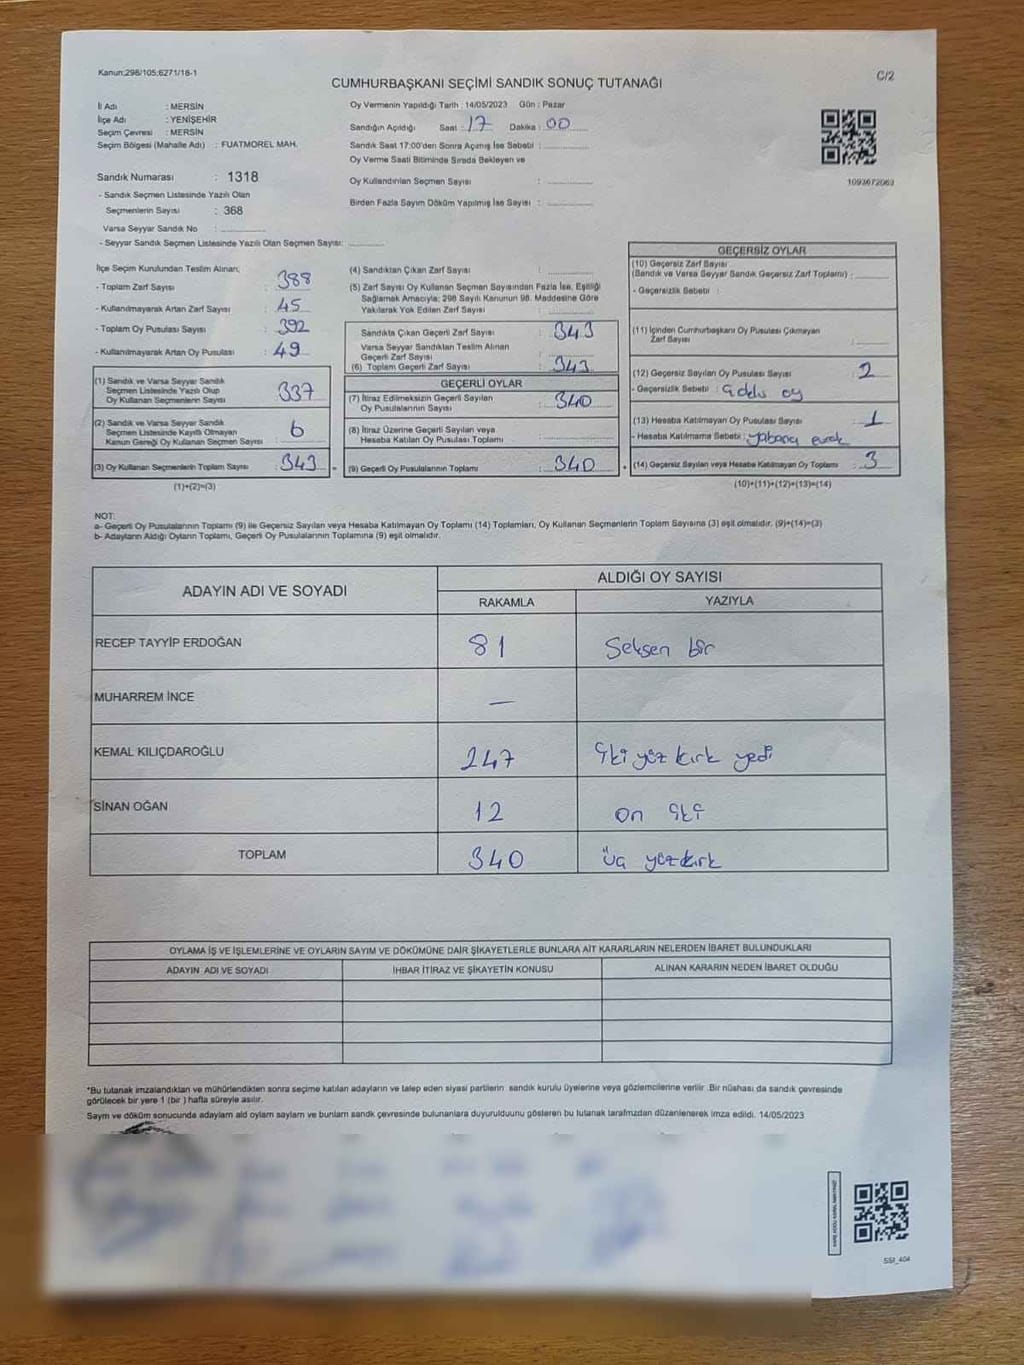 Kanun:298/105;6271/18-1
C/2
CUMHURBAŞKANI SEÇİMİ SANDIK SONUÇ TUTANAĞI
İl Adı : MERSİN
İlçe Adı : YENİŞEHİR
Seçim Çevresi : MERSİN
Seçim Bölgesi (Mahalle Adı) : FUATMOREL MAH.
Oy Vermenin Yapıldığı Tarih : 14/05/2023 Gün : Pazar
Sandığın Açıldığı Saat : 17 Dakika : 00
Sandık Saat 17:00'den Sonra Açımış İse Sebebi :
Oy Verme Saati Bitiminde Sırada Bekleyen ve
Oy Kullandırılan Seçmen Sayısı :
Birden Fazla Sayım Döküm Yapılmış İse Sayısı :
1093672063
Sandık Numarası : 1318
- Sandık Seçmen Listesinde Yazılı Olan
Seçmenlerin Sayısı : 368
Varsa Seyyar Sandık No :
- Seyyar Sandık Seçmen Listesinde Yazılı Olan Seçmen Sayısı:
İlçe Seçim Kurulundan Teslim Alınan;
- Toplam Zarf Sayısı : 388
- Kullanılmayarak Artan Zarf Sayısı : 45
- Toplam Oy Pusulası Sayısı : 392
- Kullanılmayarak Artan Oy Pusulası : 49
(1) Sandık ve Varsa Seyyar Sandık
Seçmen Listesinde Yazılı Olup
Oy Kullanan Seçmenlerin Sayısı : 337
(2) Sandık ve Varsa Seyyar Sandık
Seçmen Listesinde Kayıtlı Olmayan
Kanun Gereği Oy Kullanan Seçmen Sayısı : 6
(3) Oy Kullanan Seçmenlerin Toplam Sayısı : 343
(1)+(2)=(3)
(4) Sandıktan Çıkan Zarf Sayısı :
(5) Zarf Sayısı Oy Kullanan Seçmen Sayısından Fazla İse, Eşitliği
Sağlamak Amacıyla; 298 Sayılı Kanunun 98. Maddesine Göre
Yakılarak Yok Edilen Zarf Sayısı :
Sandıkta Çıkan Geçerli Zarf Sayısı : 343
Varsa Seyyar Sandıktan Teslim Alınan
Geçerli Zarf Sayısı :
(6) Toplam Geçerli Zarf Sayısı : 343
GEÇERLİ OYLAR
(7) İtiraz Edilmeksizin Geçerli Sayılan
Oy Pusulalarının Sayısı : 340
(8) İtiraz Üzerine Geçerli Sayılan veya
Hesaba Katılan Oy Pusulası Toplamı :
(9) Geçerli Oy Pusulalarının Toplamı : 340
=
+
GEÇERSİZ OYLAR
(10) Geçersiz Zarf Sayısı
(Sandık ve Varsa Seyyar Sandık Geçersiz Zarf Toplamı) :
- Geçersizlik Sebebi :
(11) İçinden Cumhurbaşkanı Oy Pusulası Çıkmayan
Zarf Sayısı :
(12) Geçersiz Sayılan Oy Pusulası Sayısı : 2
- Geçersizlik Sebebi : oy
(13) Hesaba Katılmayan Oy Pusulası Sayısı : 1
- Hesaba Katılmama Sebebi : yabancı evrak
(14) Geçersiz Sayılan veya Hesaba Katılmayan Oy Toplamı : 3
(10)+(11)+(12)+(13)=(14)
NOT:
a- Geçerli Oy Pusulalarının Toplamı (9) ile Geçersiz Sayılan veya Hesaba Katılmayan Oy Toplamı (14) Toplamları, Oy Kullanan Seçmenlerin Toplam Sayısına (3) eşit olmalıdır. (9)+(14)=(3)
b- Adayların Aldığı Oyların Toplamı, Geçerli Oy Pusulalarının Toplamına (9) eşit olmalıdır.
ADAYIN ADI VE SOYADI
ALDIĞI OY SAYISI
RAKAMLA YAZIYLA
RECEP TAYYİP ERDOĞAN 81 Seksen bir
MUHARREM İNCE —
KEMAL KILIÇDAROĞLU 247 iki yüz kırk yedi
SİNAN OĞAN 12 on iki
TOPLAM 340 üç yüz kırk
OYLAMA İŞ VE İŞLEMLERİNE VE OYLARIN SAYIM VE DÖKÜMÜNE DAİR ŞİKAYETLERLE BUNLARA AİT KARARLARIN NELERDEN İBARET BULUNDUKLARI
ADAYIN ADI VE SOYADI İHBAR İTİRAZ VE ŞİKAYETİN KONUSU ALINAN KARARIN NEDEN İBARET OLDUĞU
*Bu tutanak imzalandıktan ve mühürlendikten sonra seçime katılan adayların ve talep eden siyasi partilerin sandık kurulu üyelerine veya gözlemcilerine verilir .Bir nüshası da sandık çevresinde
görülecek bir yere 1 (bir ) hafta süreyle asılır.
Sayım ve döküm sonucunda adayların ald oyların sayların ve bunların sandk çevresinde bulunanlara duyurulduunu gösteren bu tutanak tarafmzdan düzenlenerek imza edildi. 14/05/2023
SSI_404